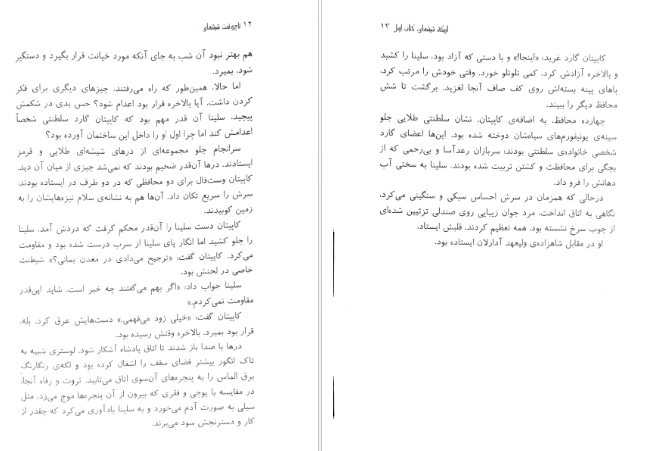 ۱۲ تاج‌وتخت شیشه‌ای
هم بهتر نبود آن شب به جای آنکه مورد خیانت قرار بگیرد و دستگیر
شود، بمیرد.
اما حالا، همین‌طور که راه می‌رفتند، چیزهای دیگری برای فکر
کردن داشت. آیا بالاخره قرار بود اعدام شود؟ حس بدی در شکمش
پیچید. سلینا آن قدر مهم بود که کاپیتان گارد سلطنتی شخصاً
اعدامش کند اما چرا اول او را داخل این ساختمان آورده بود؟
سرانجام جلو مجموعه‌ای از درهای شیشه‌ای طلایی و قرمز
ایستادند. درها آن‌قدر ضخیم بودند که نمی‌شد چیزی از میان آن دید.
کاپیتان وست‌فال برای دو محافظی که در دو طرف در ایستاده بودند،
سرش را سریع تکان داد. آن‌ها هم به نشانه‌ی سلام نیزه‌هایشان را به
زمین کوبیدند.
کاپیتان دست سلینا را آن‌قدر محکم گرفت که دردش آمد. سلینا
را جلو کشید اما انگار پای سلینا از سرب درست شده بود و مقاومت
می‌کرد. کاپیتان گفت: «ترجیح می‌دادی در معدن بمانی؟» شیطنت
خاصی در لحنش بود.
سلینا جواب داد: «اگر بهم می‌گفتند چه خبر است، شاید این‌قدر
مقاومت نمی‌کردم.»
کاپیتان گفت: «خیلی زود می‌فهمی.» دست‌هایش عرق کرد. بله،
قرار بود بمیرد. بالاخره وقتش رسیده بود.
درها با صدا باز شدند تا اتاق پادشاه آشکار شود. لوستری شبیه به
تاک انگور بیشتر فضای سقف را اشغال کرده بود و لکه‌ی رنگارنگ
برق الماس را به پنجره‌های آن‌سوی اتاق می‌تابید. ثروت و رفاه آنجا،
در مقایسه با پوچی و فقری که بیرون از آن پنجره‌ها موج می‌زد، مثل
سیلی به صورت آدم می‌خورد و به سلینا یادآوری می‌کرد که چقدر از
کار و دسترنجش سود می‌برند.
اریکه شیشه‌ای، کتاب اول ۱۳
کاپیتان گارد غرید: «اینجا!» و با دستی که آزاد بود، سلینا را کشید
و بالاخره آزادش کرد. کمی تلوتلو خورد. وقتی خودش را مرتب کرد،
پاهای پینه بسته‌اش روی کف صاف آنجا لغزید. برگشت تا شش
محافظ دیگر را ببیند.
چهارده محافظ، به اضافه‌ی کاپیتان. نشان سلطنتی طلایی جلو
سینه‌ی یونیفورم‌های سیاه‌شان دوخته شده بود. این‌ها اعضای گارد
شخصی خانواده‌ی سلطنتی بودند؛ سربازان رعدآسا و بی‌رحمی که از
بچگی برای محافظت و کشتن تربیت شده بودند. سلینا به سختی آب
دهانش را فرو داد.
درحالی که همزمان در سرش احساس سبکی و سنگینی می‌کرد،
نگاهی به اتاق انداخت. مرد جوان زیبایی روی صندلی تزئین شده‌ای
از چوب سرخ نشسته بود. همه تعظیم کردند. قلبش ایستاد.
او در مقابل شاهزاده‌ی ولیعهد آدارلان ایستاده بود.